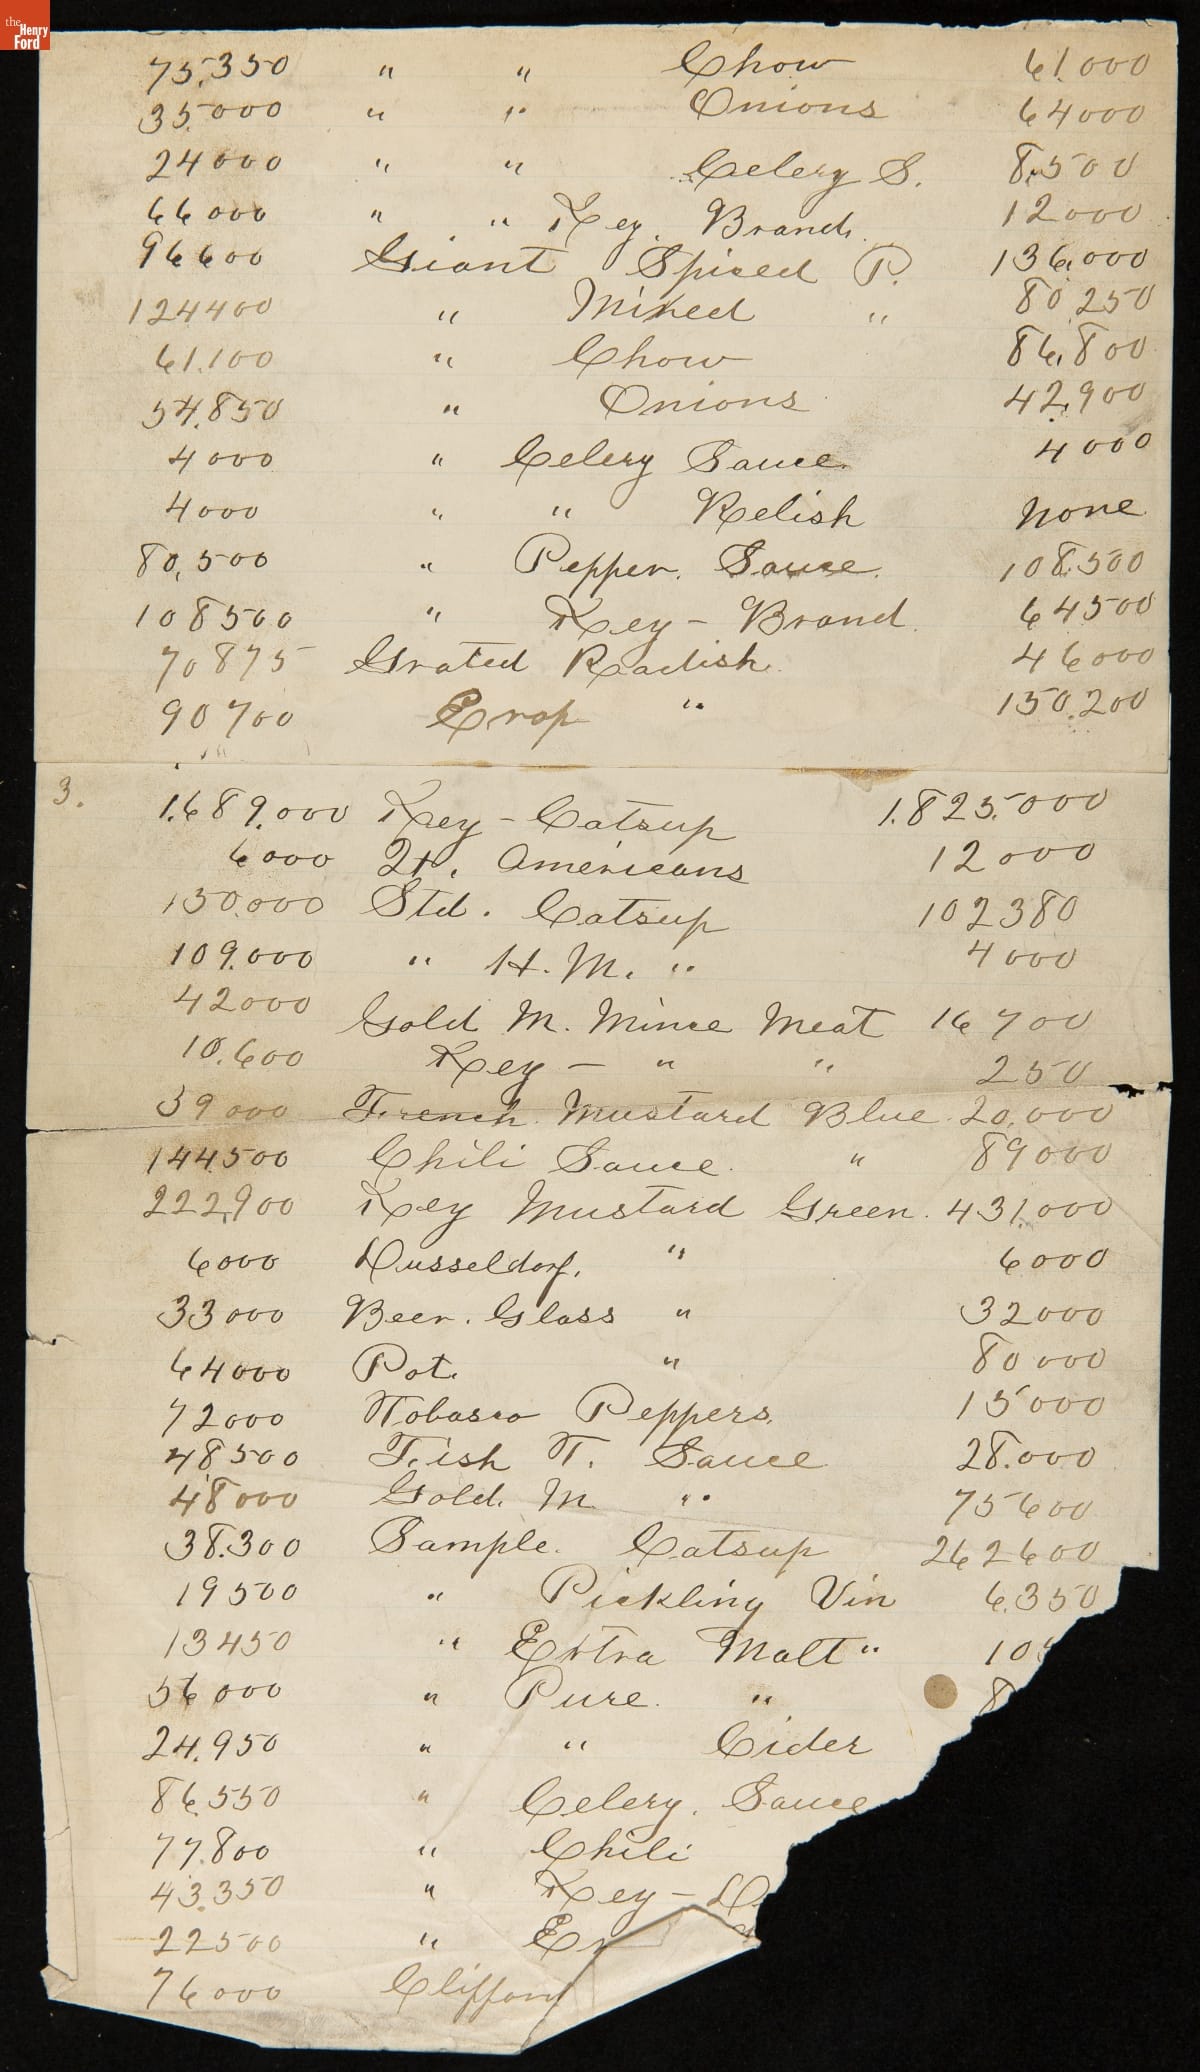 the Henry Ford
75,350 " " Chow 61.000
35.000 " " Onions 64000
24000 " " Celery S. 8,500
66000 " " Key. Brand. 12000
96600 Giant Spiced P. 136,000
124400 " Mixed " 80250
61.100 " Chow 86,800
54.850 " Onions 42,900
4000 " Celery Sauce 4000
4000 " " Relish None
80,500 " Pepper. Sauce. 108.500
108500 " Key - Brand 64500
70875 Grated Radish. 46000
90700 Crop " 150.200
3.
1.689.000 Key - Catsup 1.825.000
6000 Qt. Americans 12000
150.000 Std. Catsup 102380
109.000 " H. M. " 4000
42000 Gold M. Mince Meat 16700
10.600 Key - " " 250
39000 French Mustard Blue 20,000
144.500 Chili Sauce. " 89000
222,900 Key Mustard Green. 431.000
6000 Dusseldorf. " 6000
33000 Beer. Glass " 32000
64000 Pot. " 80000
72000 Tobasco Peppers. 15000
48500 Fish T. Sauce 28.000
48000 Gold. M " 75600
38.300 Sample. Catsup 262600
19500 " Pickling Vin 6.350
13450 " Extra Malt " 10
56000 " Pure. " 8
24.950 " " Cider
86.550 " Celery. Sauce
77.800 " Chili
43.350 " Key -
22500 "
76000